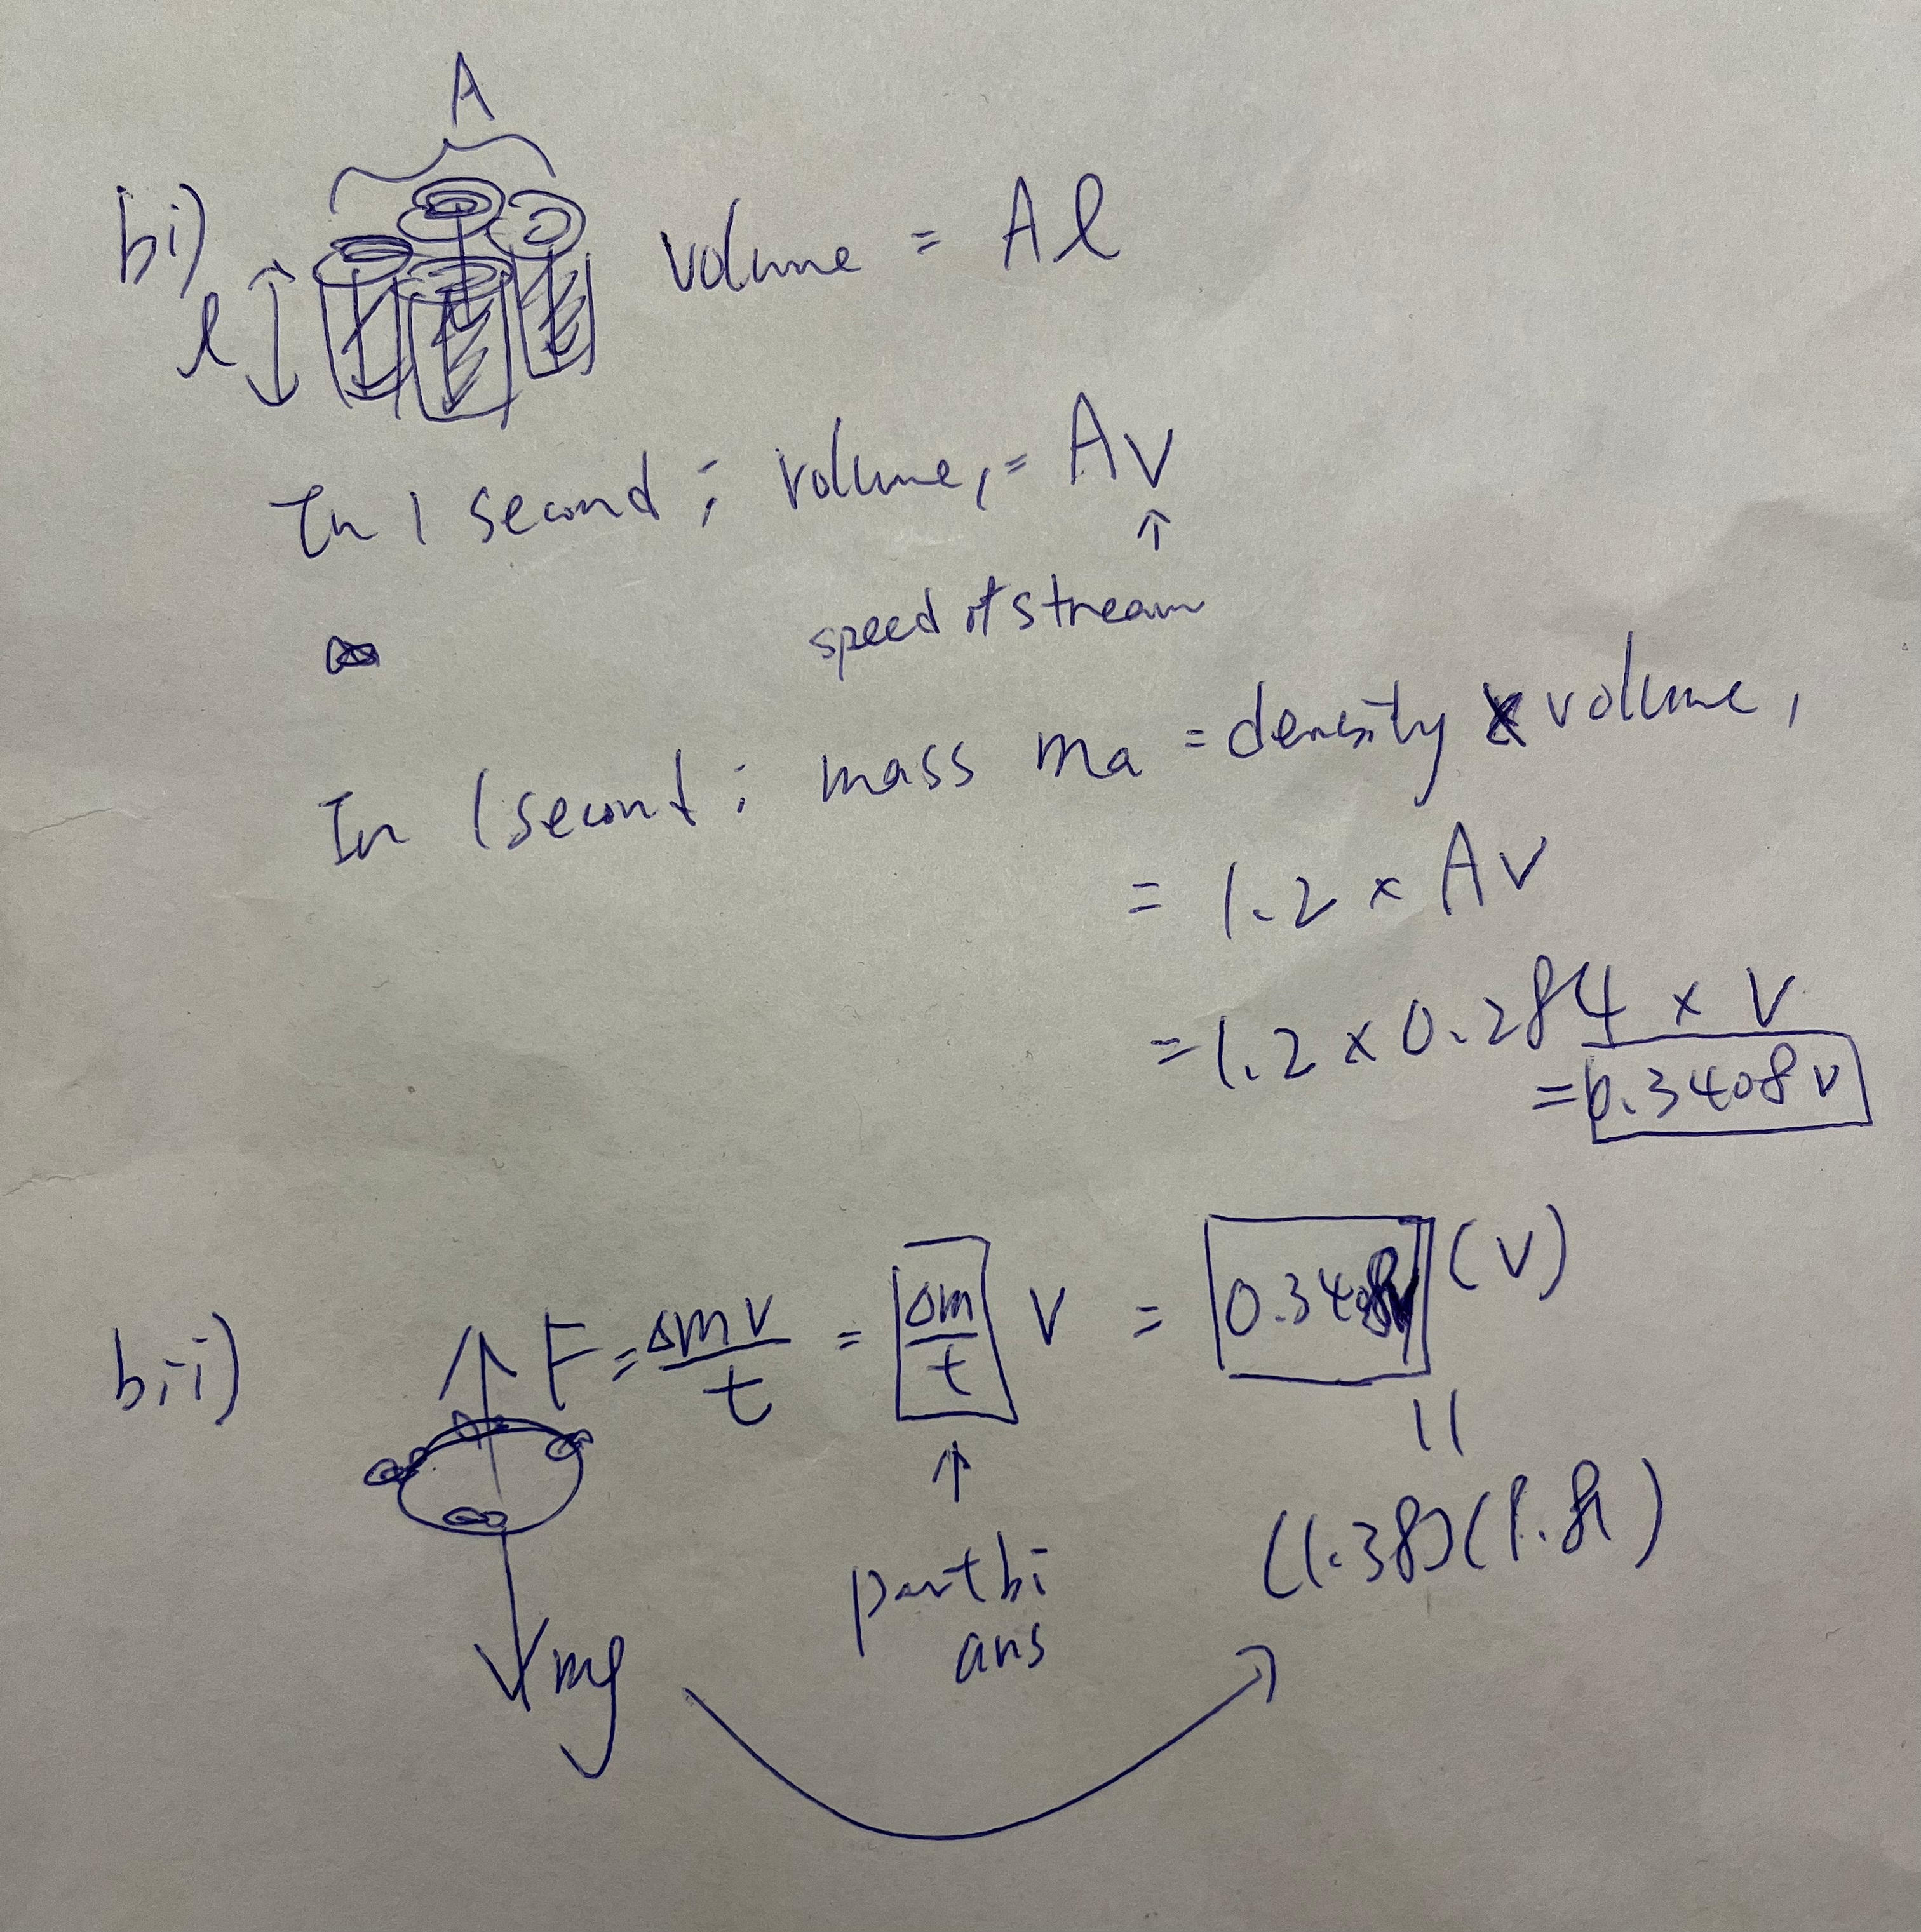 A
bi)
l
volume = Al
In 1 second ; volume, = Av
↑
speed of stream
In 1 second ; mass ma = density x volume,
= 1.2 x Av
= 1.2 x 0.284 x V
= 0.3408 v
bii) ↑ F = Δmv/t = Δm/t V = 0.3408v (v)
↑
part bi
ans
||
(1.38)(9.81)
mg